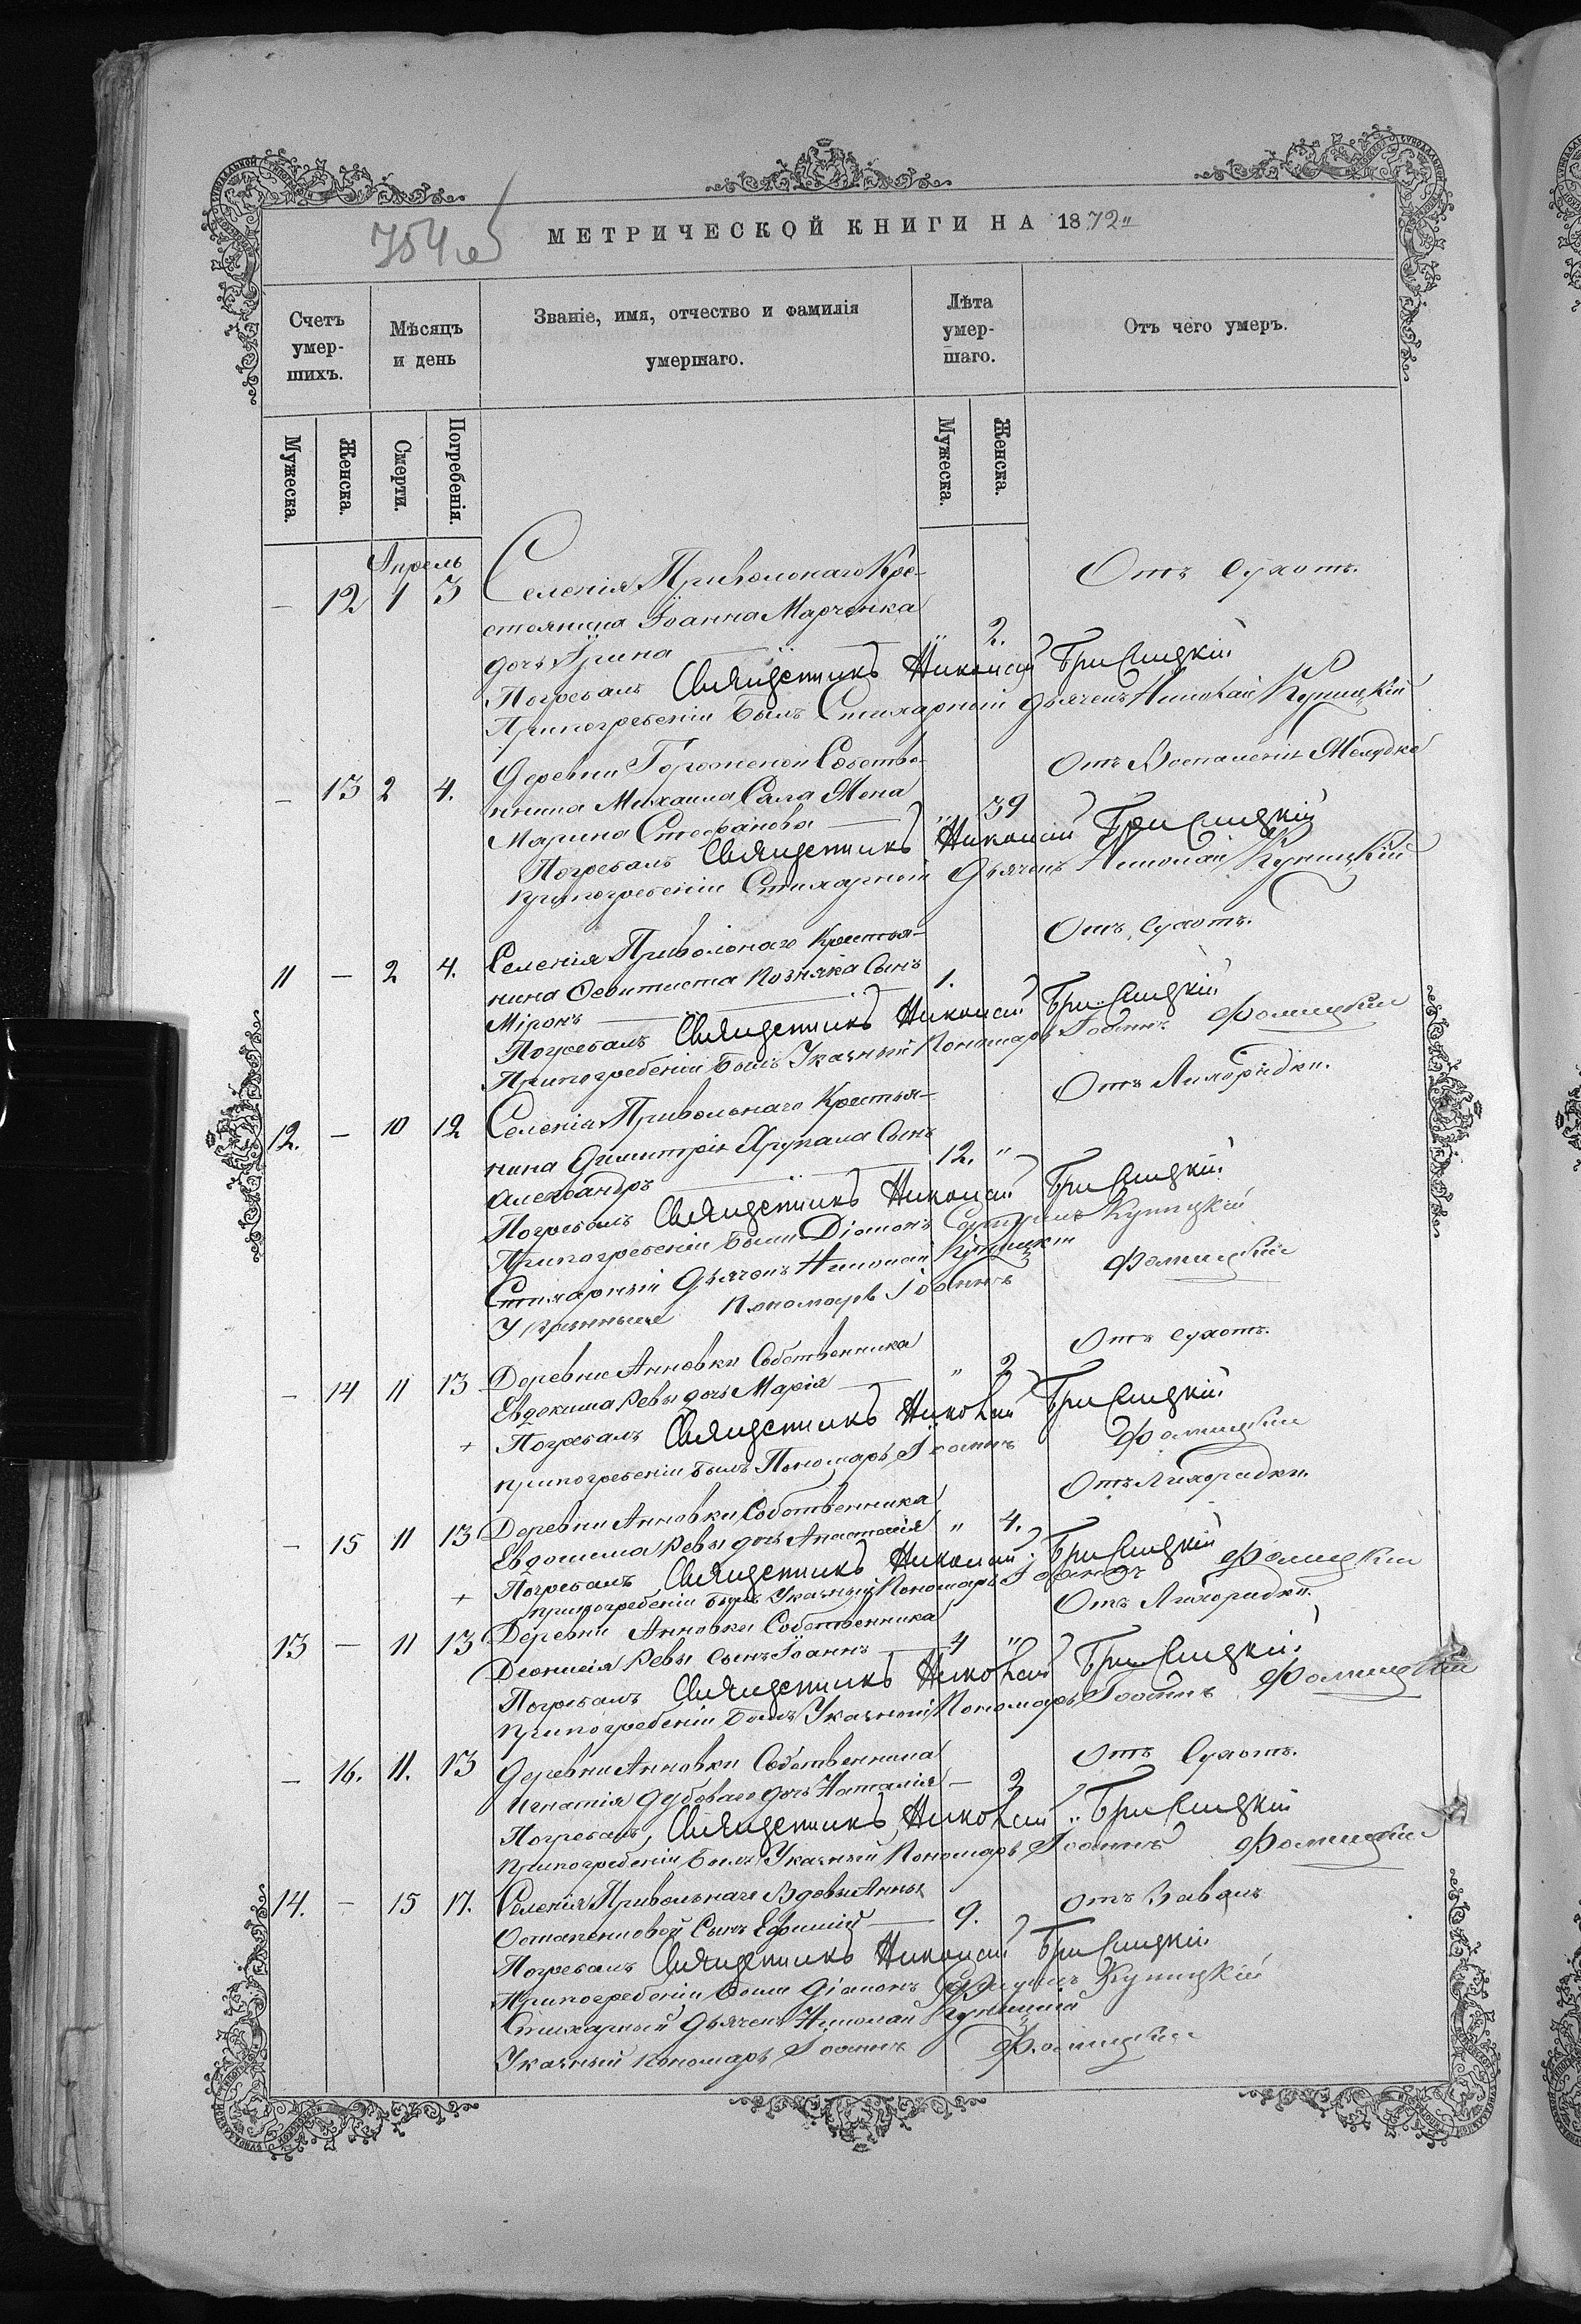 754 об
МЕТРИЧЕСКОЙ КНИГИ НА 1872
Счетъ умер-шихъ.
Мѣсяцъ и день
Званіе, имя, отчество и фамилія умершаго.
Лѣта умер-шаго.
Отъ чего умеръ.
Мужеска. Женска. Смерти. Погребенія. Мужеска. Женска.
Апрель
— 12 1 3 Селенія Привольнаго Кре- Отъ Сухотъ.
стьянина Іоанна Марченка
дочь Ирина — " 2.
Погребалъ Священникъ Николай
При погребеніи былъ Стихарный дьячекъ Николай Куницкій
— 13 2 4. Деревни Гороженой Собстве- Отъ Воспаленія Желудка
нника Михаила Сала Жена
Марина Стефанова — " 39
Погребалъ Священникъ Николай
при погребеніи Стихарный Дьячекъ Николай Куницкій
11 — 2 4. Селенія Привольнаго Крестья- Отъ Сухотъ.
нина Позняка Сынъ
Міронъ — 1.
Погребалъ Священникъ Николай
При погребеніи былъ Указный Пономарь Іоаннъ
12. — 10 12 Селенія Привольнаго Крестья- Отъ Лихорадки.
нина Димитрія Хрупала Сынъ
Александръ — 12. "
Погребалъ Священникъ Николай
При погребеніи были Діаконъ Куницкій
Стихарный Дьячекъ Николай Куницкій
Пономарь Іоаннъ
— 14 11 13 Деревни Анновки Собственника Отъ Сухотъ.
Евдокима Ревы дочь Марія — " 2
+ Погребалъ Священникъ Николай
при погребеніи былъ Пономарь Іоаннъ
— 15 11 13 Деревни Анновки Собственника Отъ Лихорадки.
Евдокима Ревы дочь Анастасія " 4.
+ Погребалъ Священникъ Николай
при погребеніи былъ Указный Пономарь Іоаннъ
13 — 11 13 Деревни Анновки Собственника Отъ Лихорадки.
Діонисія Ревы сынъ Іоаннъ — 4 "
Погребалъ Священникъ Николай
При погребеніи былъ Указный Пономарь Іоаннъ
— 16. 11. 13 Деревни Анновки Собственника Отъ Сухотъ.
Игнатія Дубоваго дочь Наталія — 2
Погребалъ Священникъ Николай
При погребеніи былъ Указный Пономарь Іоаннъ
14. — 15 17. Селенія Привольнаго Вдовы Анны Отъ Завалъ
Остапенковой Сынъ Ефимій — 9.
Погребалъ Священникъ Николай
При погребеніи были Діаконъ Куницкій
Стихарный Дьячекъ Николай Куницкій
Указный пономарь Іоаннъ